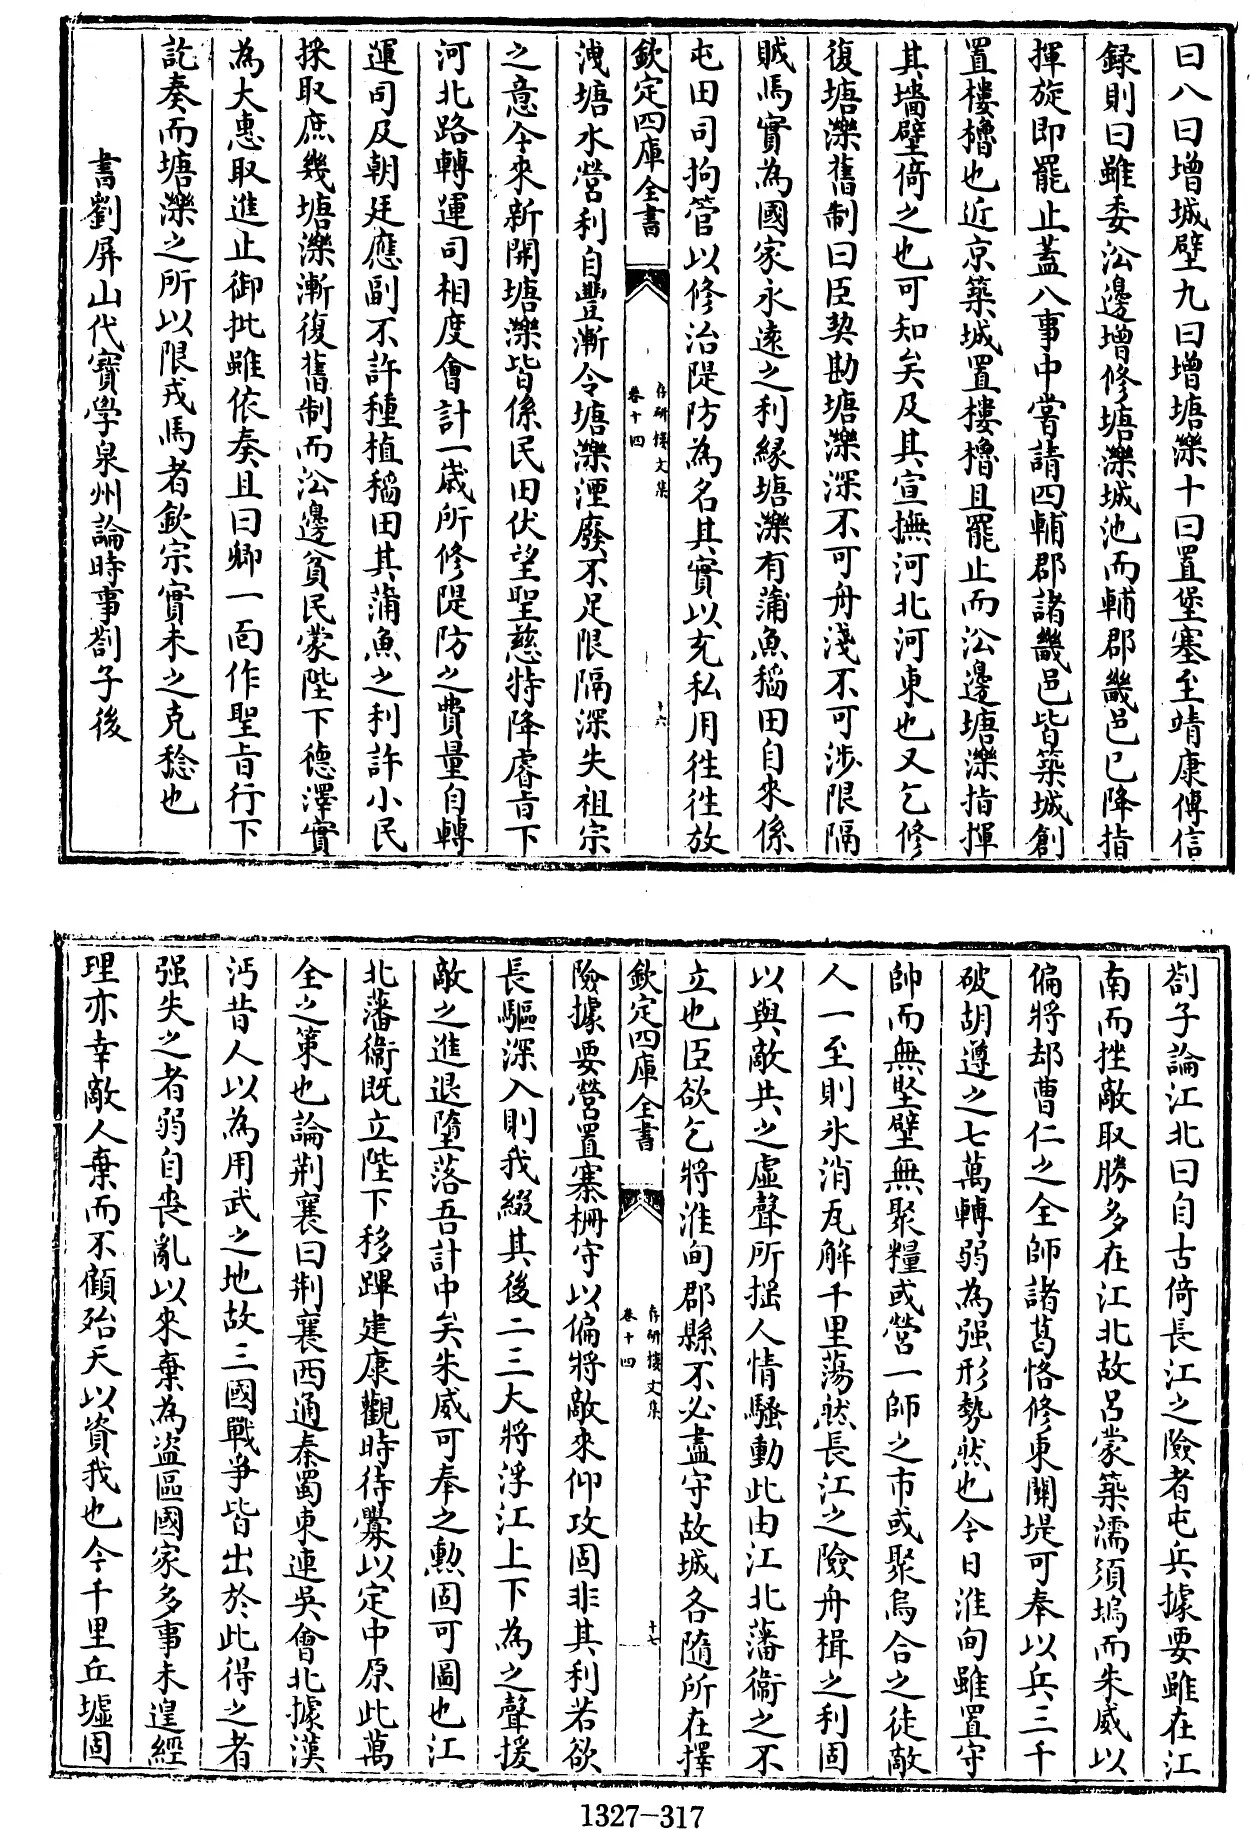 曰八曰增城壁九曰增塘濼十曰置堡塞至靖康傅信
録則曰雖委㳂邊增修塘濼城池而輔郡畿邑已降指
揮旋即罷止葢八事中嘗請四輔郡諸畿邑皆築城創
置樓櫓也近京築城置樓櫓且罷止而㳂邊塘濼指揮
其墻壁倚之也可知矣及其宣撫河北河東也又乞修
復塘濼舊制曰臣契勘塘濼深不可舟淺不可涉限隔
賊馬實為國家永遠之利緣塘濼有蒲魚稻田自來係
屯田司拘管以修治隄防為名其實以充私用徃徃放
欽定四庫全書
存研樓文集
卷十四
十六
洩塘水營利自豐漸令塘濼湮廢不足限隔深失祖宗
之意今來新開塘濼皆係民田伏望聖慈特降睿旨下
河北路轉運司相度會計一歲所修隄防之費量自轉
運司及朝廷應副不許種植稻田其蒲魚之利許小民
採取庶幾塘濼漸復舊制而㳂邊貧民蒙陛下德澤實
為大惠取進止御批雖依奏且曰卿一面作聖旨行下
訖奏而塘濼之所以限戎馬者欽宗實未之克稔也
書劉屏山代寶學泉州論時事劄子後
劄子論江北曰自古倚長江之險者屯兵據要雖在江
南而挫敵取勝多在江北故呂蒙築濡須塢而朱威以
偏將却曹仁之全師諸葛恪修東關堤可奉以兵三千
破胡遵之七萬轉弱為强形勢然也今日淮甸雖置守
帥而無堅壁無聚糧或營一師之市或聚烏合之徒敵
人一至則氷消瓦解千里蕩然長江之險舟楫之利固
以與敵共之虛聲所摇人情騷動此由江北藩衞之不
立也臣欲乞將淮甸郡縣不必盡守故城各隨所在擇
欽定四庫全書
存研樓文集
卷十四
十七
險據要營置寨柵守以偏將敵來仰攻固非其利若欲
長驅深入則我綴其後二三大將浮江上下為之聲援
敵之進退墮落吾計中矣朱威可奉之勲固可圖也江
北藩衞既立陛下移蹕建康觀時待釁以定中原此萬
全之策也論荆襄曰荆襄西通秦蜀東連吳會北據漢
沔昔人以為用武之地故三國戰爭皆出於此得之者
强失之者弱自喪亂以來棄為盗區國家多事未遑經
理亦幸敵人棄而不顧殆天以資我也今千里丘墟固
1327-317